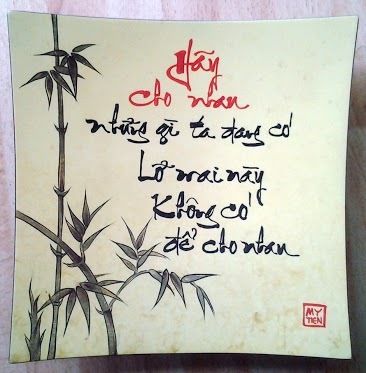 Hãy
cho nhau
những gì ta đang có
Lỡ mai này
Không có
để cho nhau
MY
TIEN